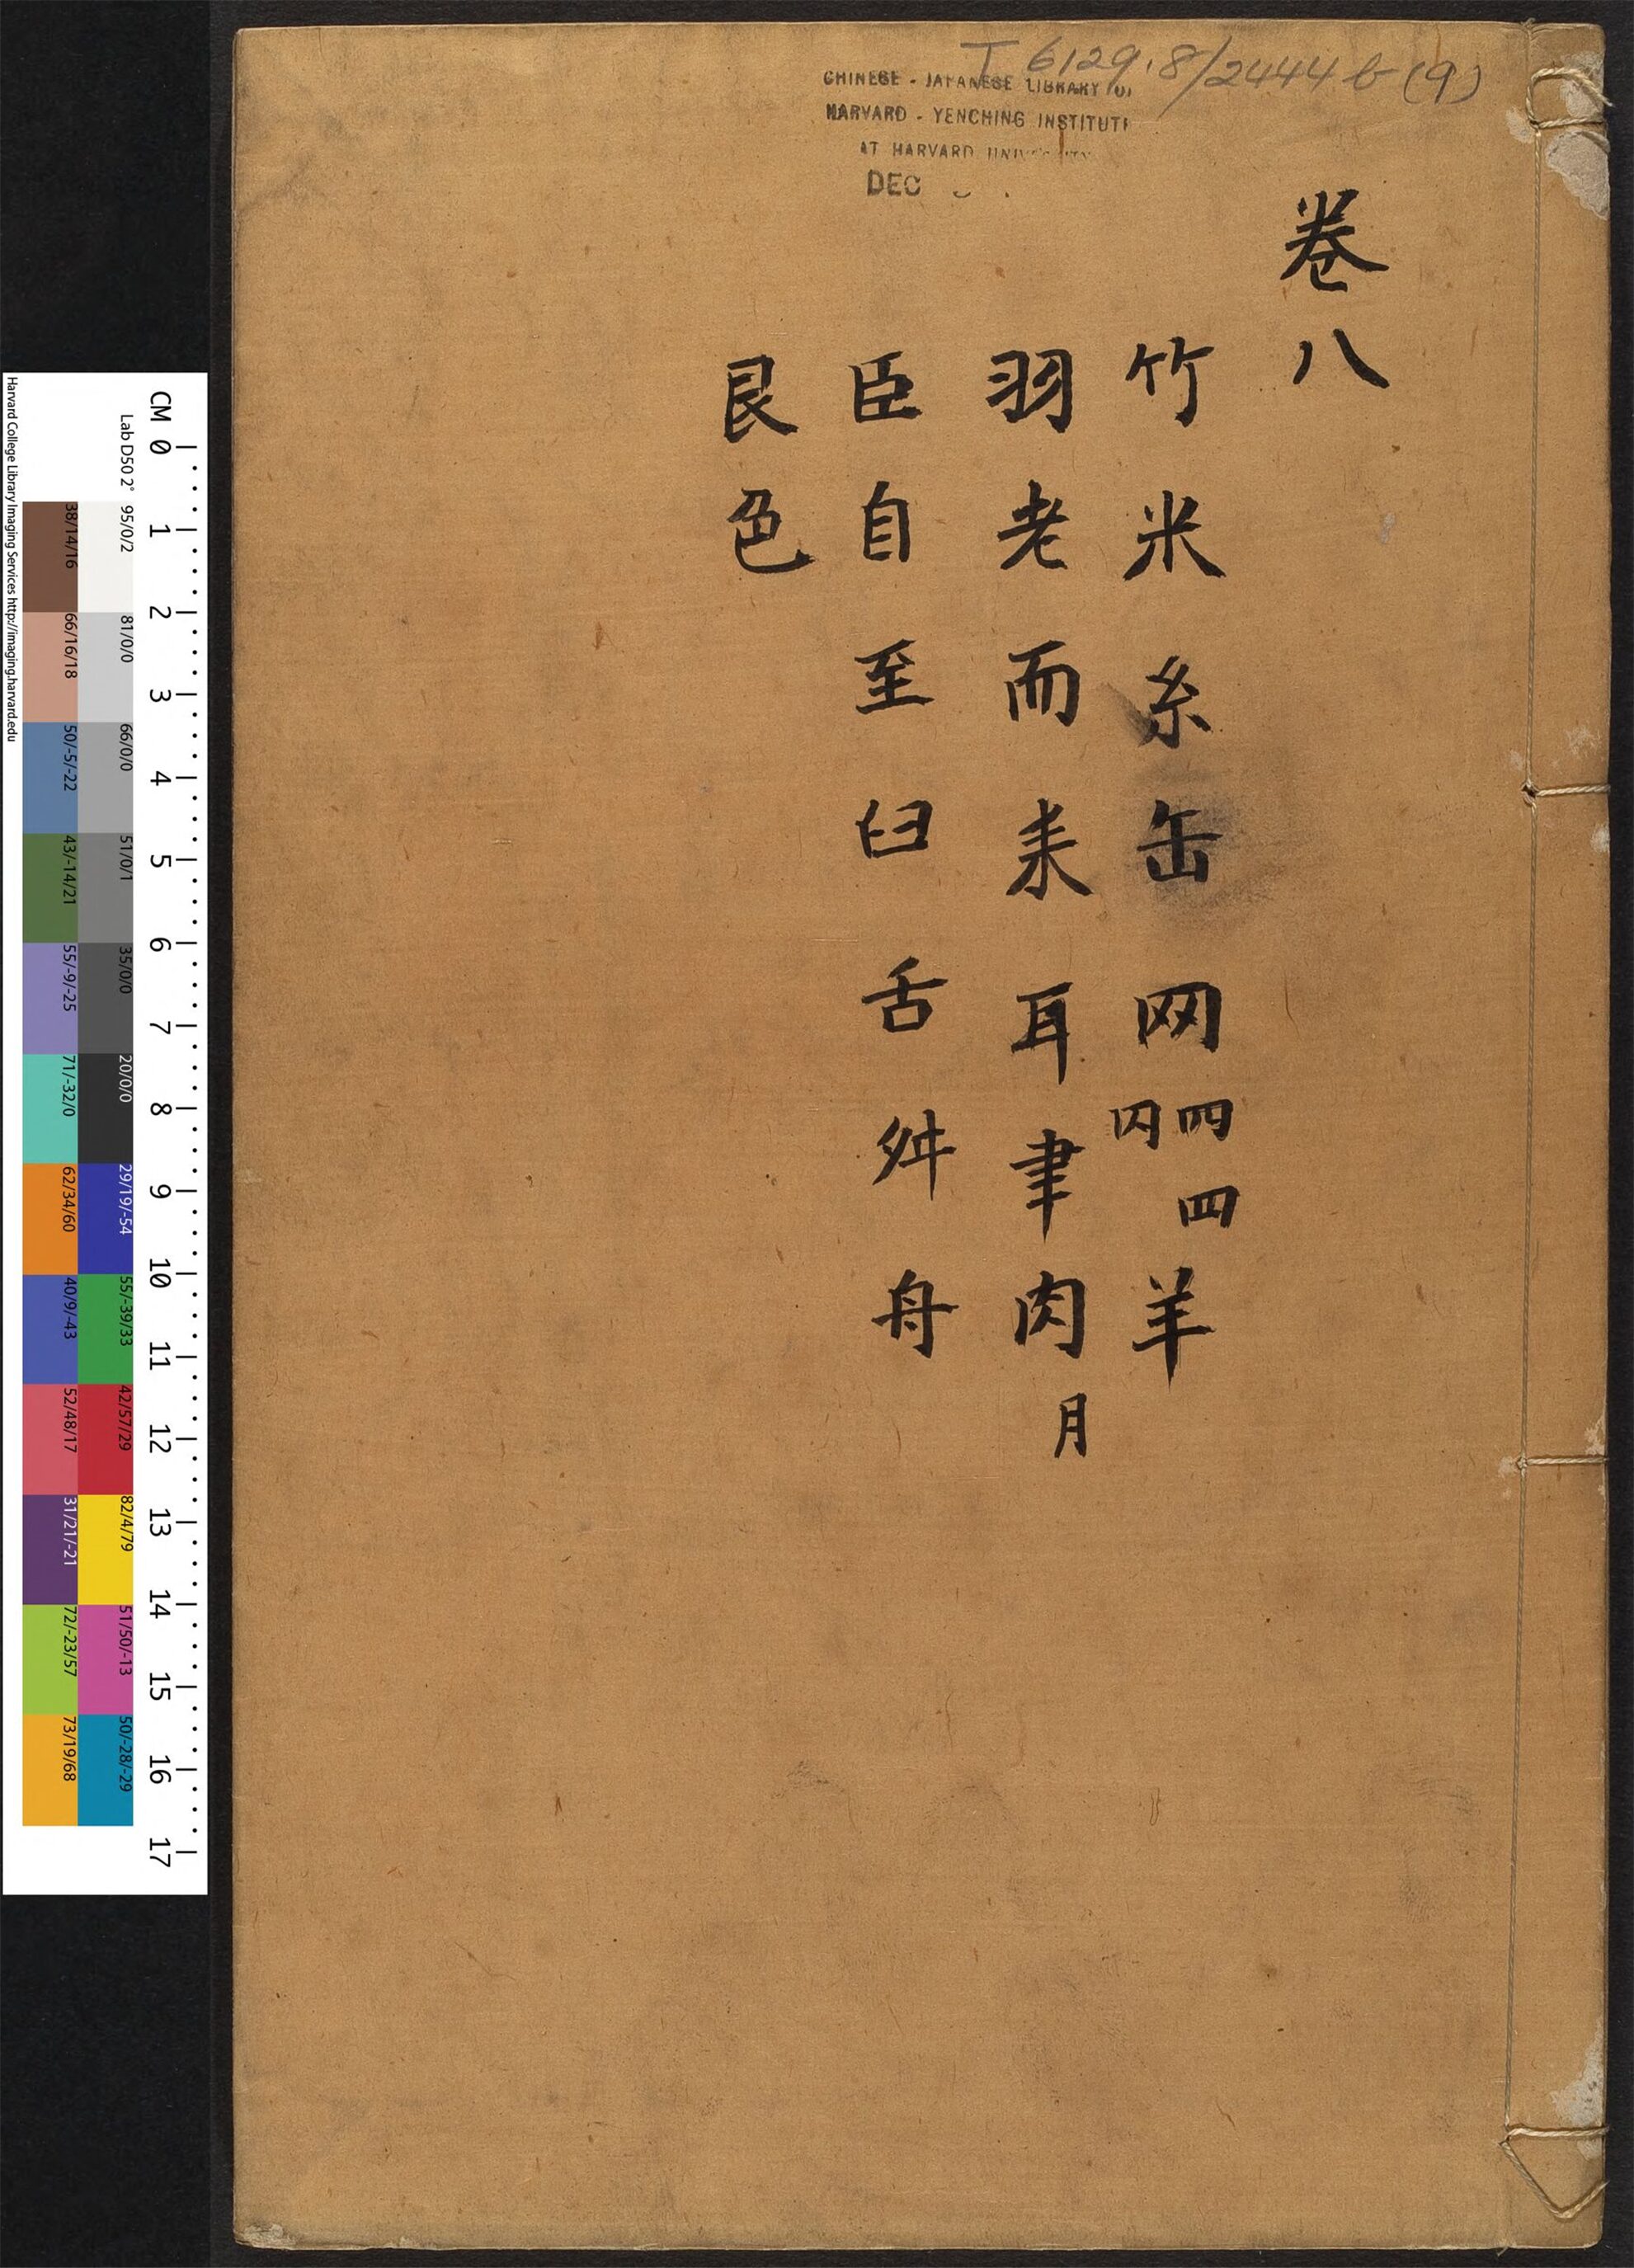 T 6129.8/2444 b (9)
CHINESE - JAPANESE LIBRARY
HARVARD - YENCHING INSTITUTE
AT HARVARD
DEC
卷八
竹米糸缶网罒四㓁羊
羽老而耒耳聿肉月
臣自至臼舌舛舟
艮色
CM 0 1 2 3 4 5 6 7 8 9 10 11 12 13 14 15 16 17
Lab D50 2° 95/0/2 81/0/0 66/0/0 51/0/1 35/0/0 20/0/0 29/19/-54 55/-39/33 42/57/29 82/4/79 51/50/-13 50/-28/-29
38/14/16 66/16/18 50/-5/-22 43/-14/21 55/-9/-25 71/-32/0 62/34/60 40/9/-43 52/48/17 31/21/-21 72/-23/57 73/19/68
Harvard College Library Imaging Services http://imaging.harvard.edu